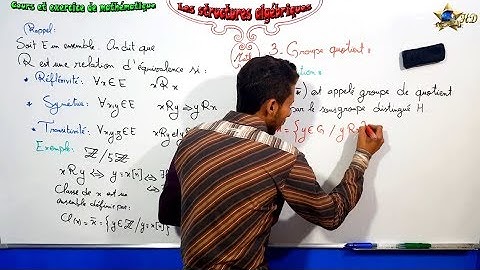 Cours et exercice de mathématique
Les structures algébriques
HD
Rappel:
Soit E un ensemble. On dit que
R est une relation d'équivalence si :
• Réfléxivité: ∀x∈E xRx
• Symétrie: ∀x,y∈E xRy ⇒ yRx
• Transitivité: ∀x,y,z∈E xRy et yR
Exemple: ℤ/5ℤ
xRy ⇔ y≡x[n] ⇔
Classe de x est un
ensemble définie par:
Cl(x) = x̄ = {y∈ℤ / y≡x[n]}
Math
3. Groupe quotient:
est appelé groupe de quotient
par le sous groupe distingué H.
= {y∈G / yRx}